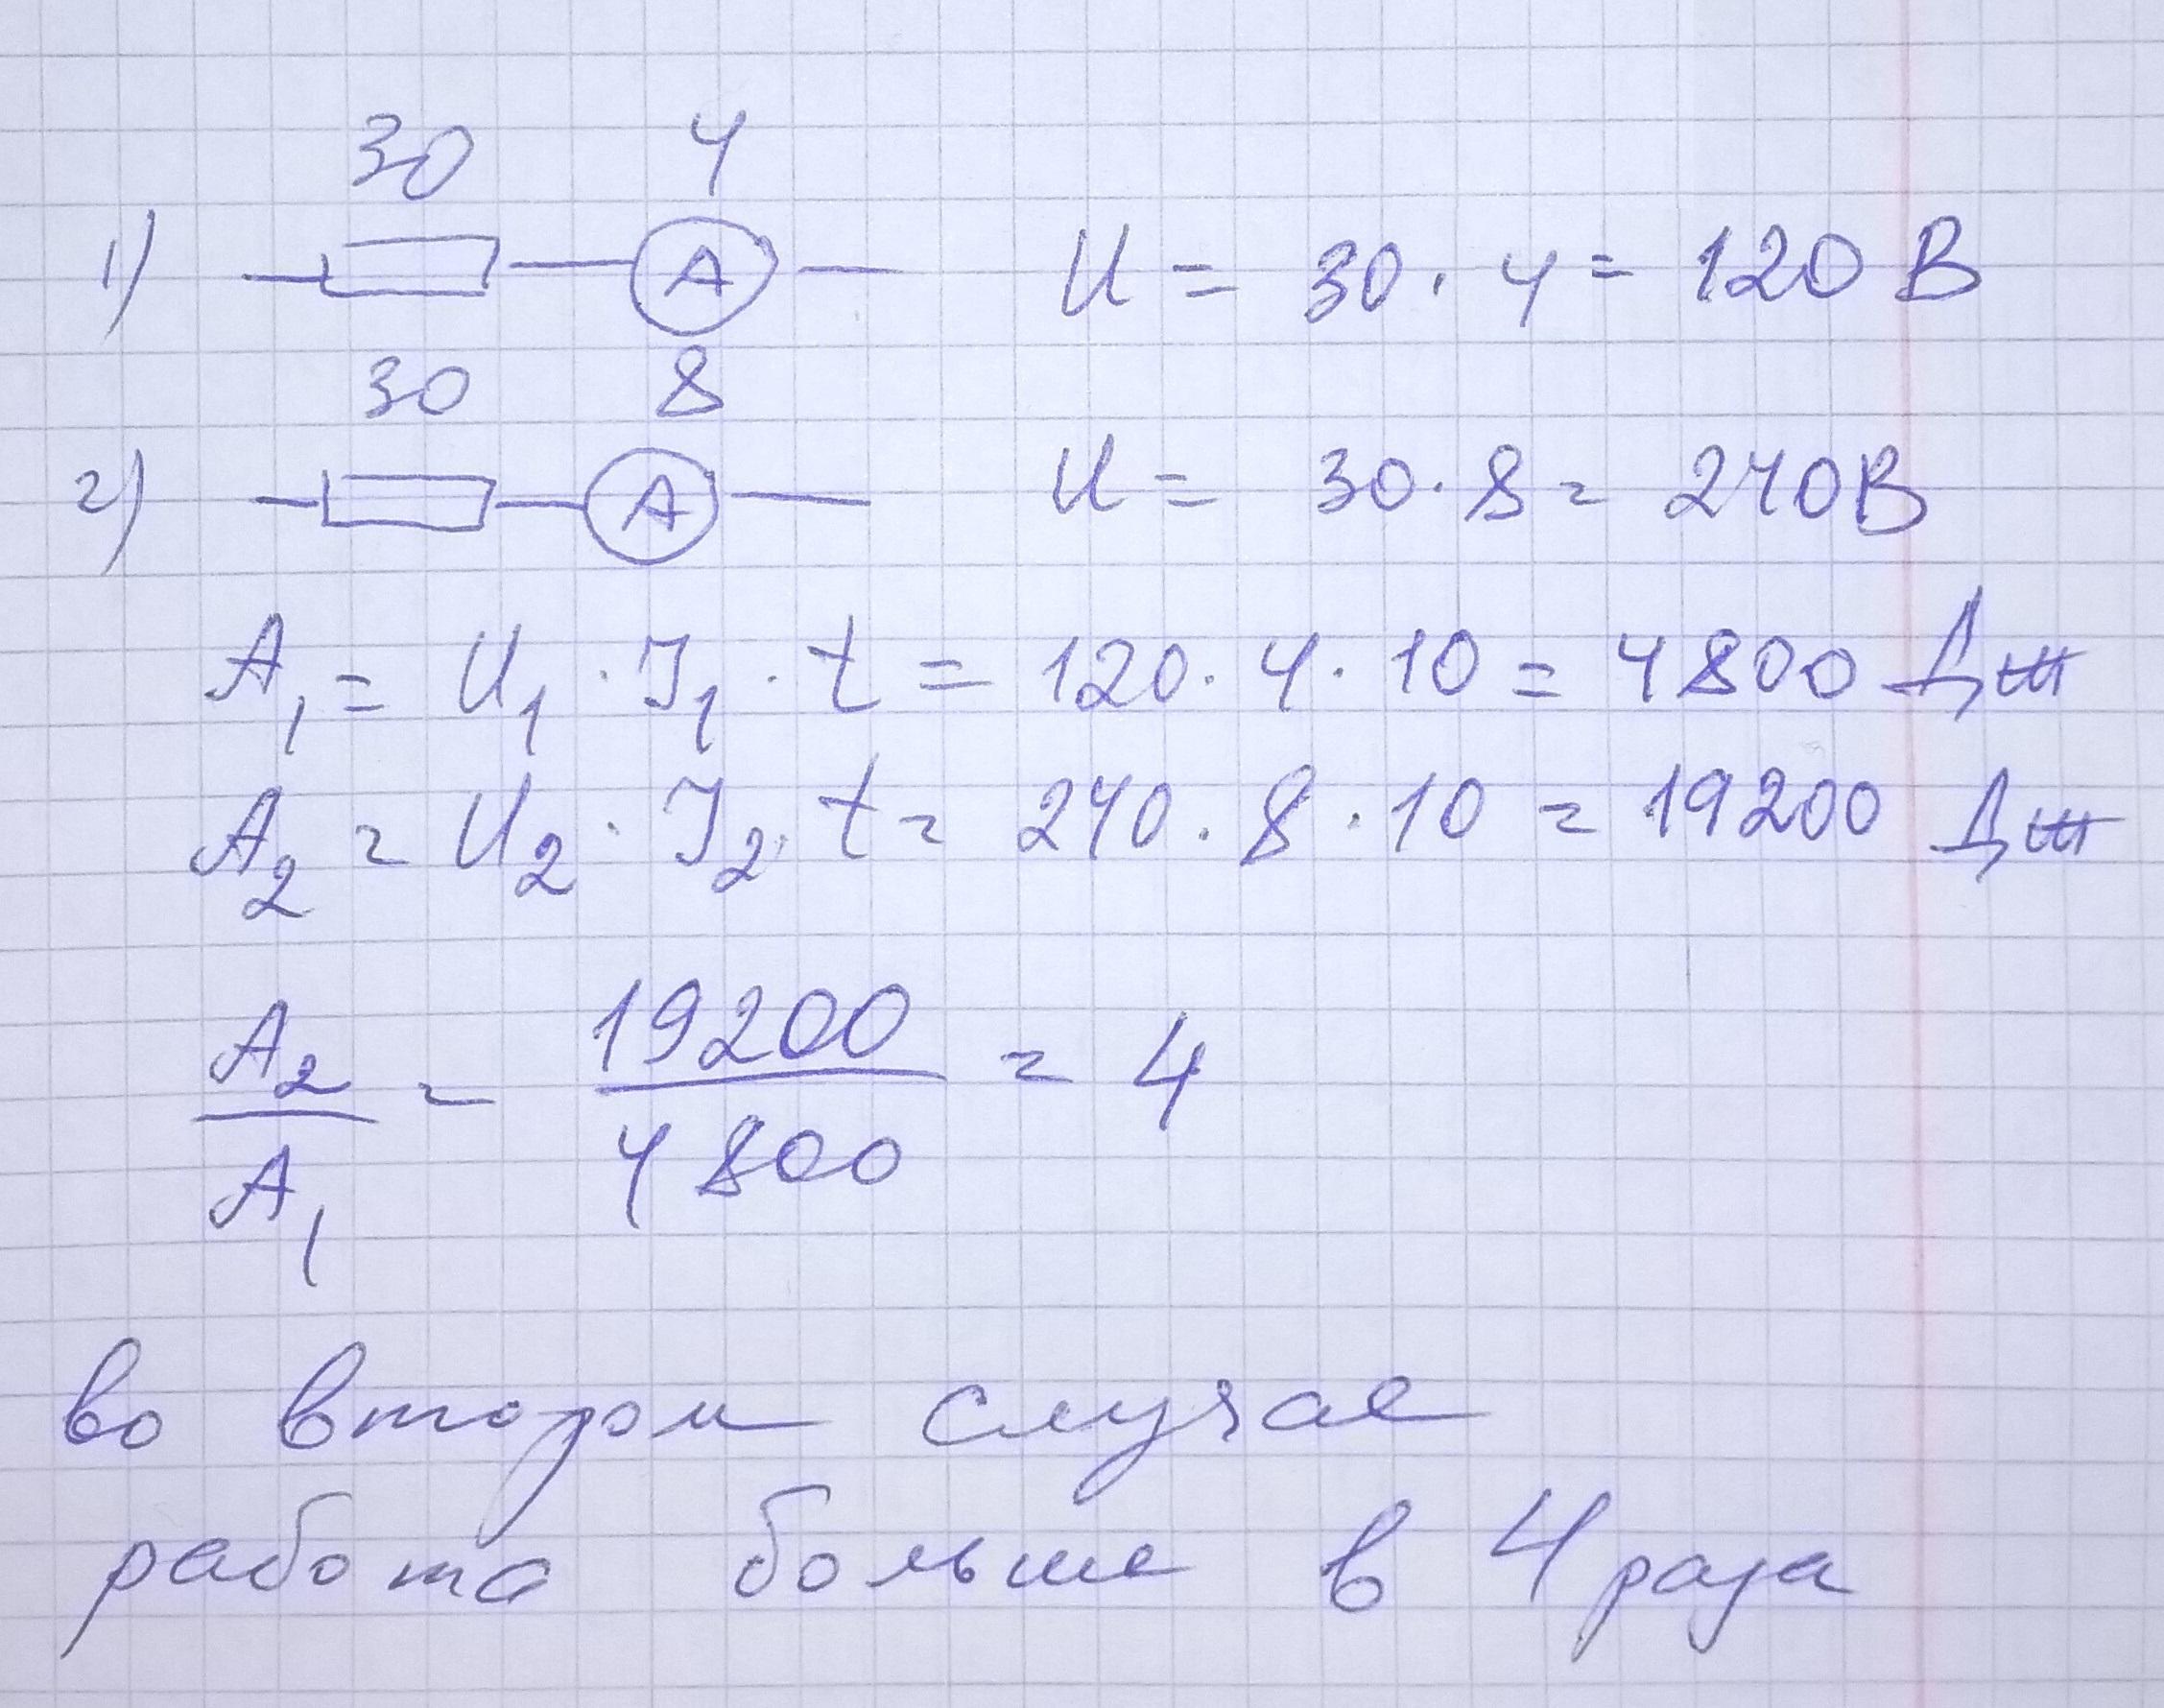 30 4
1) A U = 30 · 4 = 120 В
30 8
2) A U = 30 · 8 = 240 В
A₁ = U₁ · J₁ · t = 120 · 4 · 10 = 4800 Дж
A₂ = U₂ · J₂ · t = 240 · 8 · 10 = 19200 Дж
A₂/A₁ = 19200/4800 = 4
во втором случае
работа больше в 4 раза